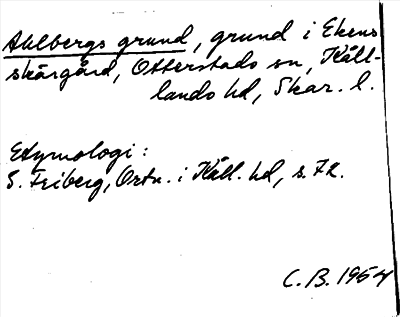 Ahlbergs grund, grund i Ekens
skärgård, Otterstads sn, Kål-
lands hd, Skar. l.
Etymologi:
S. Friberg, Ortn. i Kåll. hd, s. 72.
C. B. 1964